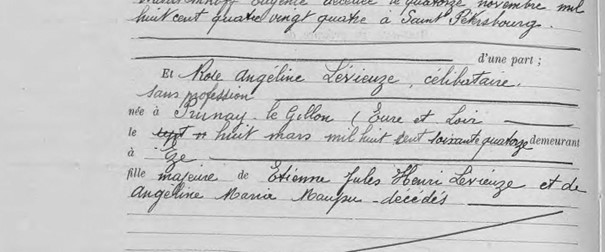 Eugénie décédée le quatorze novembre mil
huit cent quatre vingt quatre à Saint Pétersbourg.
d'une part ;
Et Rose Angéline Lévieuze, célibataire.
sans profession
née à Prunay-le-Gillon (Eure et Loir
le huit mars mil huit cent soixante quatorze demeurant
à Eze
fille majeure de Etienne Jules Henri Levieuze et de
Angéline Maria Maupu décédés